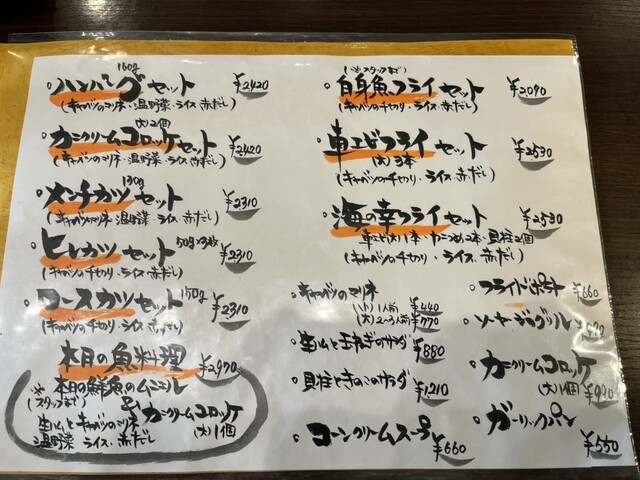 160g
ハンバーグセット ¥2420
(キャベツのマリネ・温野菜・ライス・赤だし)
(大)2個
カニクリームコロッケセット ¥2420
(キャベツのマリネ・温野菜・ライス・赤だし)
メンチカツセット 130g ¥2310
(キャベツのマリネ・温野菜・ライス・赤だし)
ヒレカツセット 50g×3枚 ¥2310
(キャベツの千切り・ライス・赤だし)
ロースカツセット 150g ¥2310
(キャベツの千切り・ライス・赤だし)
本日の魚料理 ¥2970
※本日の鮮魚のムニエル
(スタッフまで)
カニクリームコロッケ
(大)1個
生ハムとキャベツのマリネ
温野菜 ライス・赤だし
(※スタッフまで)
白身魚フライセット ¥2090
(キャベツの千切り・ライス・赤だし)
車エビフライセット ¥2530
(大)3本
(キャベツの千切り・ライス・赤だし)
海の幸フライセット ¥2530
車エビ(大)1本・カニつめ2本・貝柱2個
(キャベツの千切り・ライス・赤だし)
キャベツのマリネ
(小)1人前 ¥440
(大)2~3人前 ¥770
生ハムと玉ねぎのサラダ ¥880
貝柱ときのこのサラダ ¥1,210
コーンクリームスープ ¥660
フライドポテト ¥660
ソーセージのグリル
カニクリームコロッケ
(大)1個
ガーリックパン ¥550